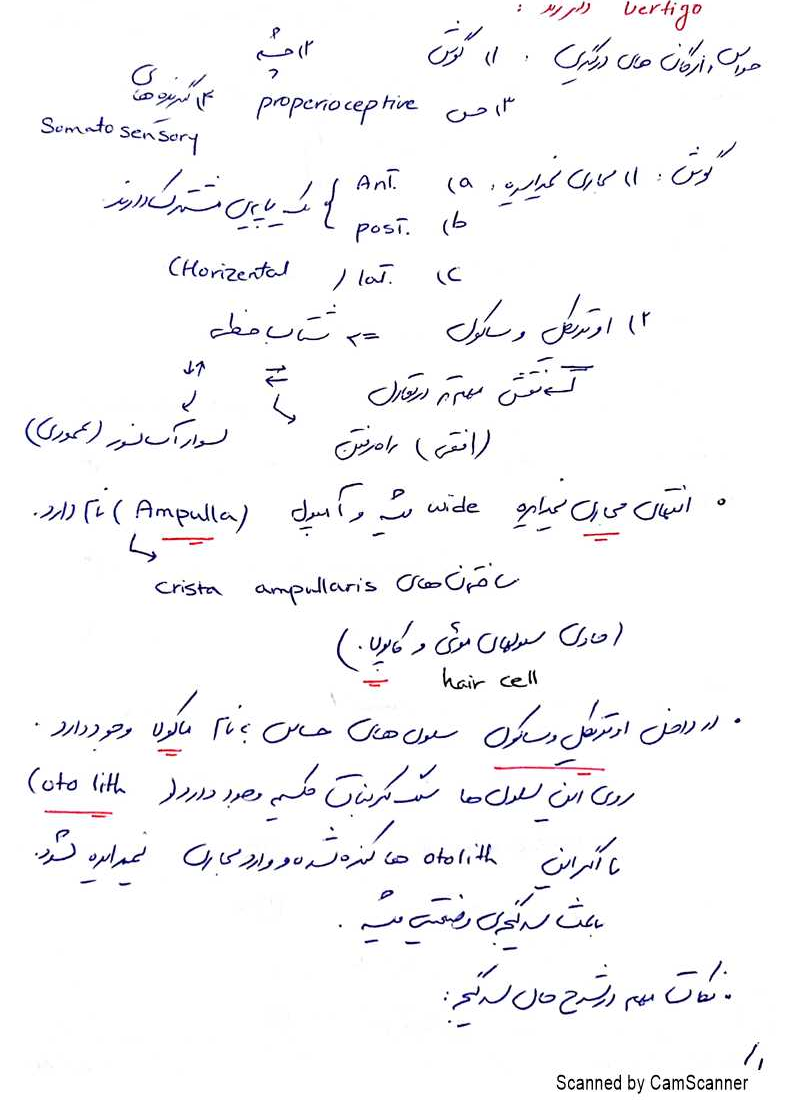 Vertigo دارند :
حواس و ارگان های درگیری : ۱) گوش ۲) چشم
۳) حس properioceptive ۴) گیرنده های
Somato sensory
گوش : ۱) مجاری نیمدایره : a) Ant.
b) post. } یک پایه ی مشترک دارند.
c) lat. (Horizental)
۲) اوتریکل و ساکول => شتاب خطی
نقش مهم تر در تعادل
⇄ ↓↑
(افقی) راه رفتن سوار آسانسور (عمودی)
• انتهای مجاری نیمدایره wide میشه و آمپول (Ampulla) نام دارد.
ساختمان های crista ampullaris
(حاوی سلولهای موئی و کاپولا.)
hair cell
• در داخل اوتریکل و ساکول سلول های حساس به نام ماکولا وجود دارد.
روی این سلول ها سنگ کربنات کلسیم وجود دارد (oto lith)
تا اگر این otolith ها کنده شده و وارد مجاری نیمدایره شود.
باعث سرگیجه ی وضعیتی میشه.
• نکات مهم در شرح حال سرگیجه :
۱/
Scanned by CamScanner